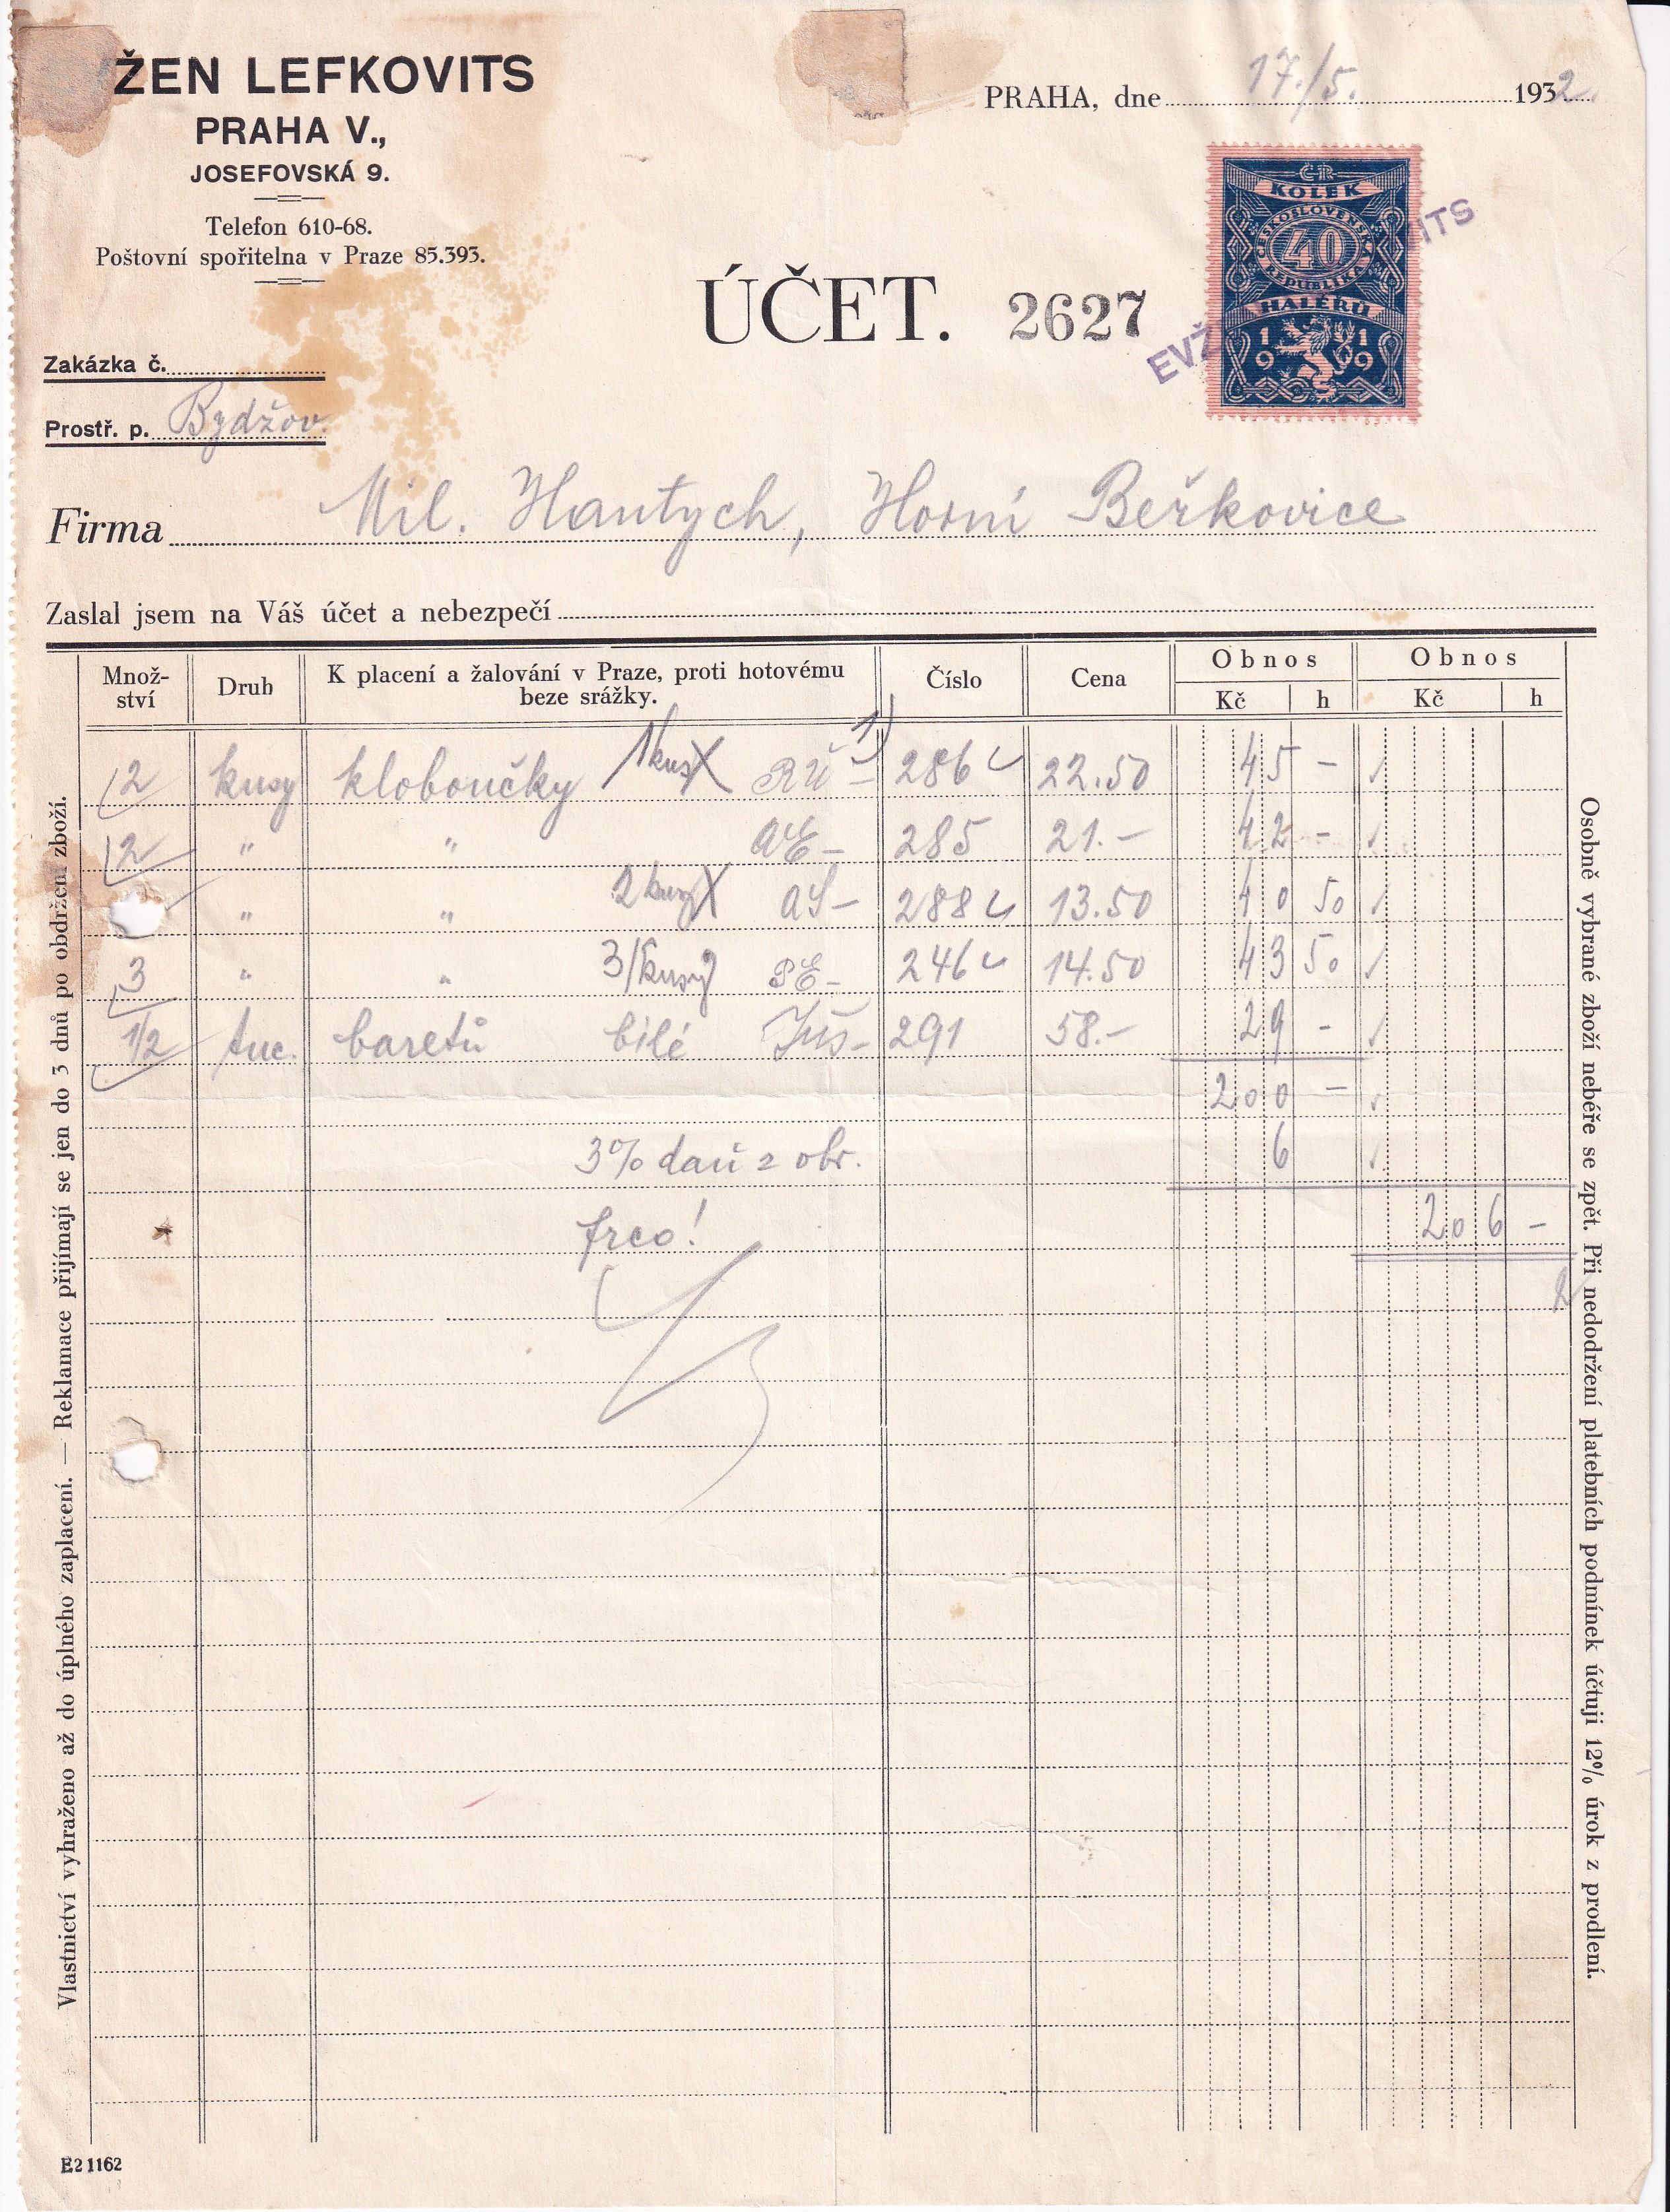 ŽEN LEFKOVITS
PRAHA V.,
JOSEFOVSKÁ 9.
Telefon 610-68.
Poštovní spořitelna v Praze 85.393.
PRAHA, dne 17./5. 1932.
ČSR
KOLEK
ČESKOSLOVENSKÁ
40
REPUBLIKA
HALÉŘŮ
1919
EVŽ ITS
ÚČET. 2627
Zakázka č.
Prostř. p. Bydžov.
Firma Mil. Hantych, Horní Beřkovice
Zaslal jsem na Váš účet a nebezpečí
Množ-ství Druh K placení a žalování v Praze, proti hotovému beze srážky. Číslo Cena Obnos Kč h Obnos Kč h
2 kusy kloboučky 1 kus RÚ - 1) 286 22.50 45 -
2 " " AE - 285 21.- 42 -
" " 2 kusy AS - 288 13.50 40 50
3 " " 3 kusy PE - 246 14.50 43 50
1/2 tuc. baretů bílé Jús - 291 58.- 29 -
200 -
3% daň z obr. 6
frco! 206 -
Vlastnictví vyhraženo až do úplného zaplacení. — Reklamace přijímají se jen do 3 dnů po obdržení zboží.
Osobně vybrané zboží nebéře se zpět. Při nedodržení platebních podmínek účtuji 12% úrok z prodlení.
E21162